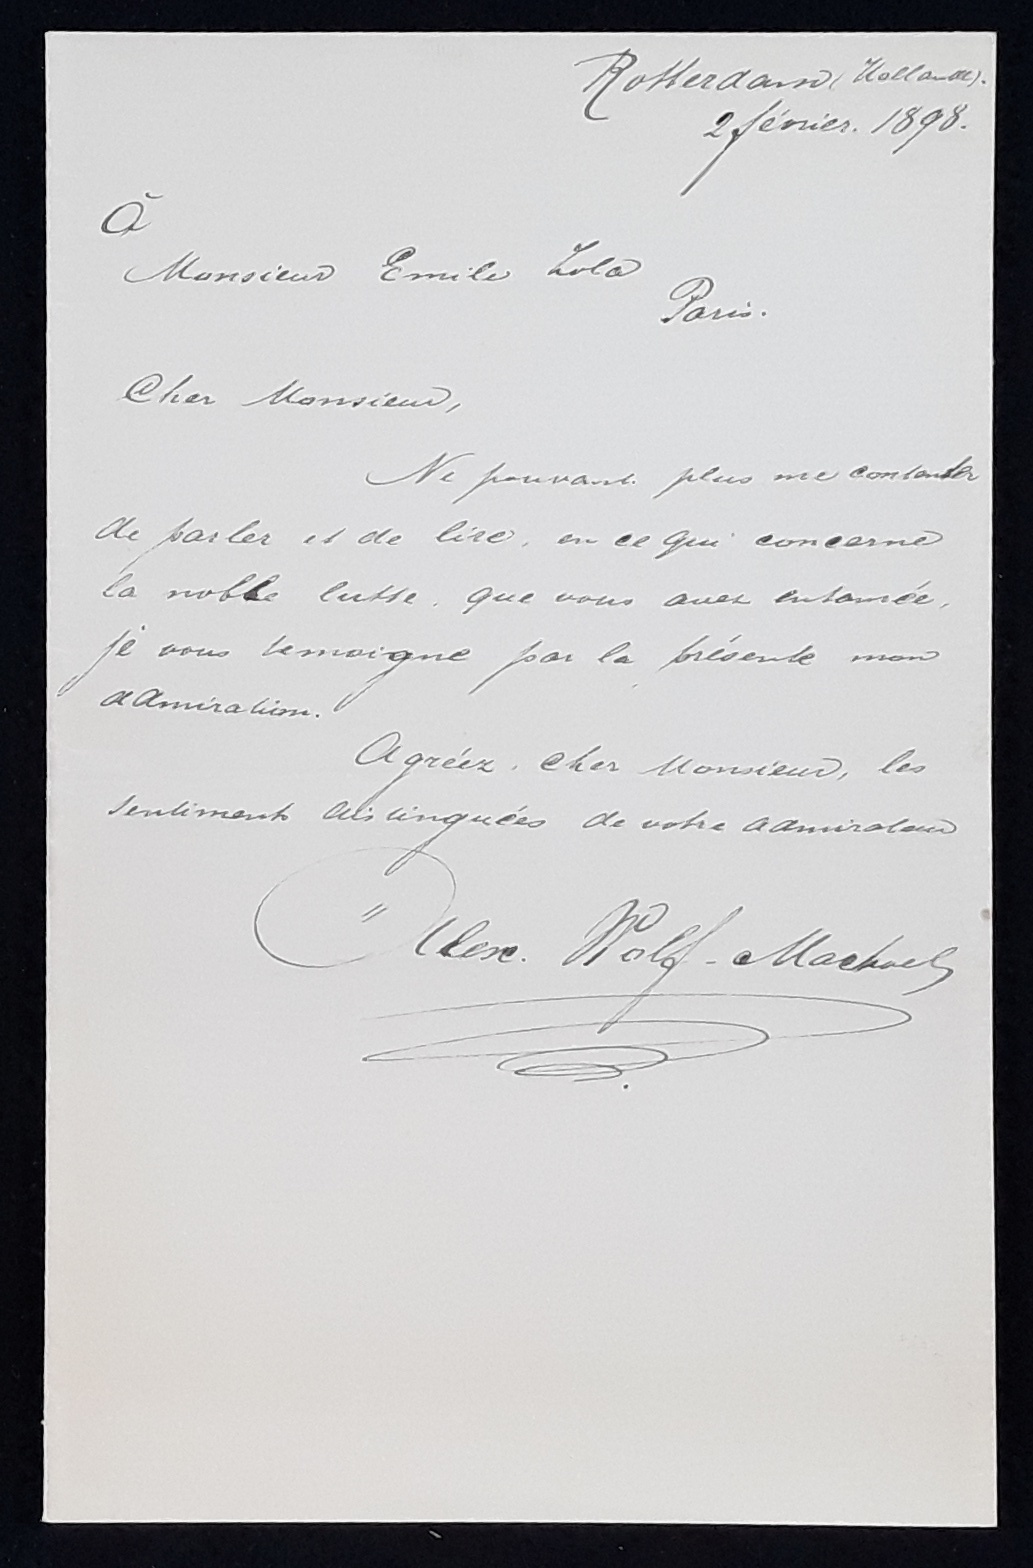 Rotterdam (Hollande).
2 février. 1898.
À
Monsieur Emile Zola
Paris.
Cher Monsieur,
Ne pouvant plus me contenter
de parler et de lire, en ce qui concerne
la noble lutte, que vous avez entamée,
je vous temoigne par la présente mon
admiration.
Agréez, cher Monsieur, les
sentiments distinguées de votre admirateur
Alex. Wolf-